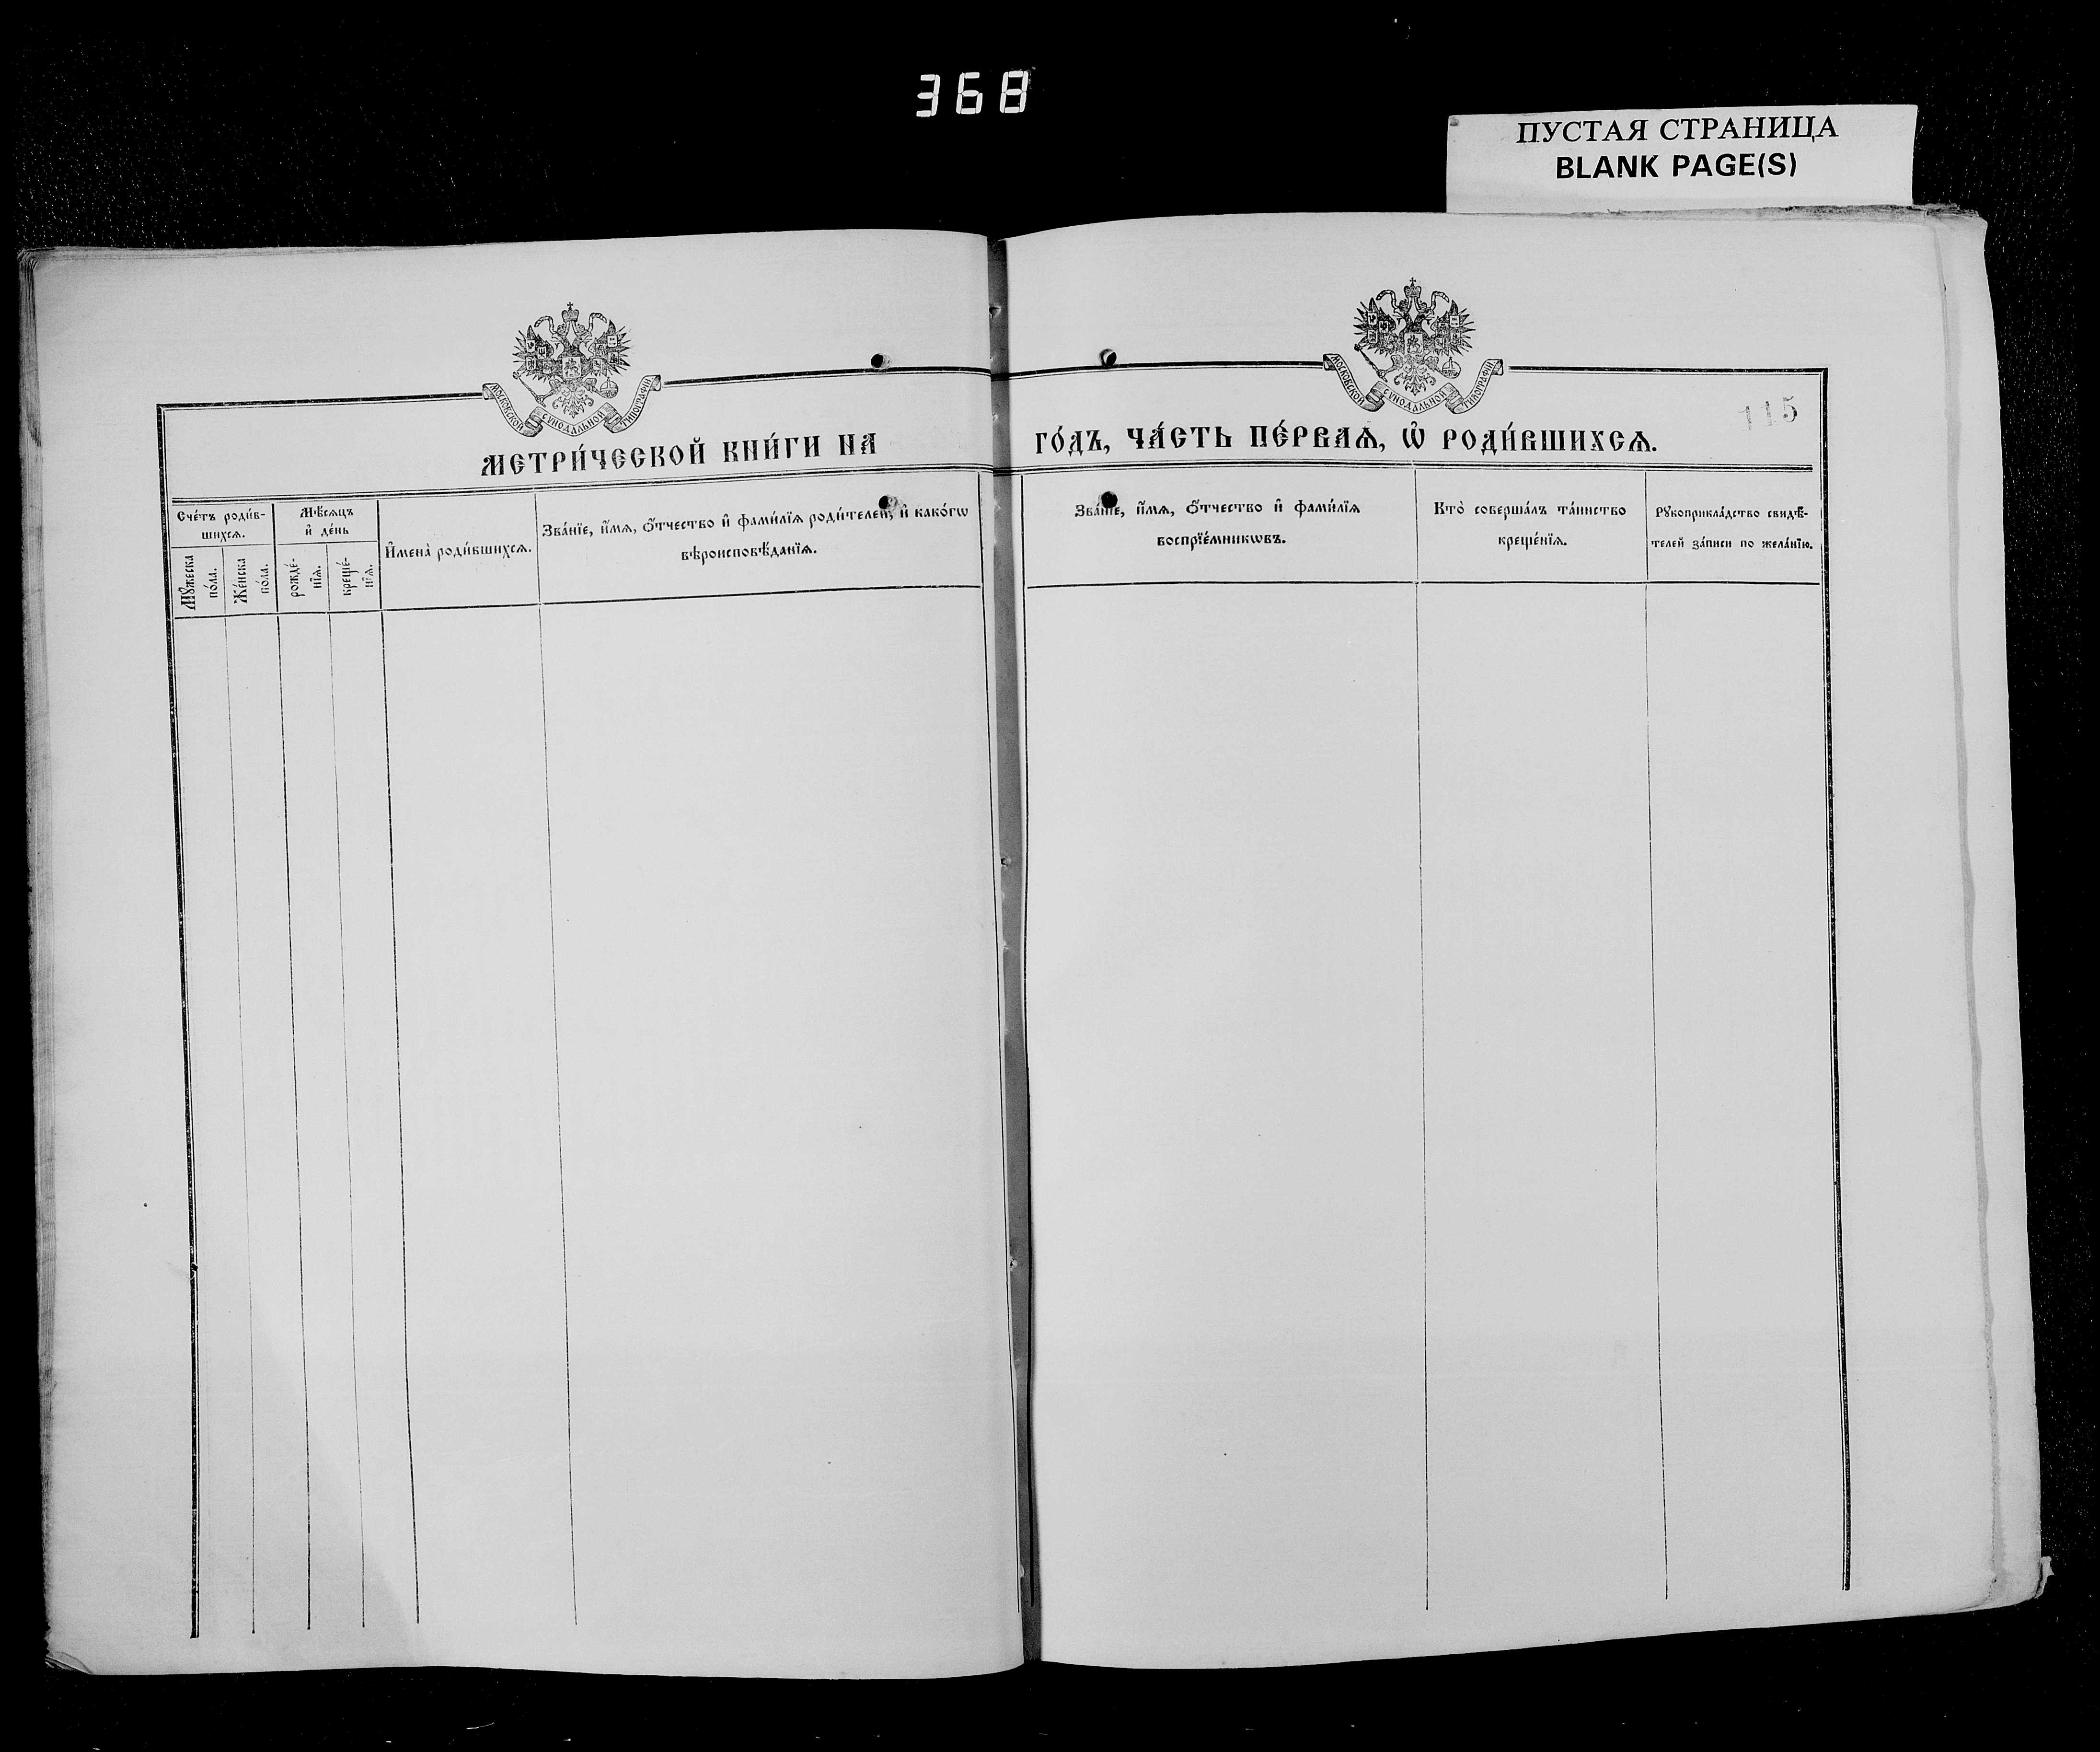 368
ПУСТАЯ СТРАНИЦА
BLANK PAGE(S)
МОСКОВСКОЙ СѴНОДАЛЬНОЙ ТИПОГРАФІИ
МОСКОВСКОЙ СѴНОДАЛЬНОЙ ТИПОГРАФІИ
115
МЕТРИ́ЧЕСКОЙ КНИ́ГИ НА ГО́ДЪ, ЧА́СТЬ ПЕ́РВАѦ, Ѽ РОДИ́ВШИХСѦ.
Сче́тъ роди́в-
шихсѧ.
Мꙋ́жеска
по́ла.
Же́нска
по́ла.
Мѣ́сѧцъ
и҆ де́нь
рожде́-
нїѧ.
креще́-
нїѧ.
И҆мена̀ роди́вшихсѧ.
Зва́нїе, и҆́мѧ, ѻ҆́тчество и҆ фами́лїѧ роди́телей, и҆ како́гѡ
вѣроисповѣ́данїѧ.
Зва́нїе, и҆́мѧ, ѻ҆́тчество и҆ фами́лїѧ
воспрїе́мникѡвъ.
Кто̀ соверша́лъ та́инство
креще́нїѧ.
Рꙋкоприкла́дство свидѣ́-
телей за́писи по жела́нїю.